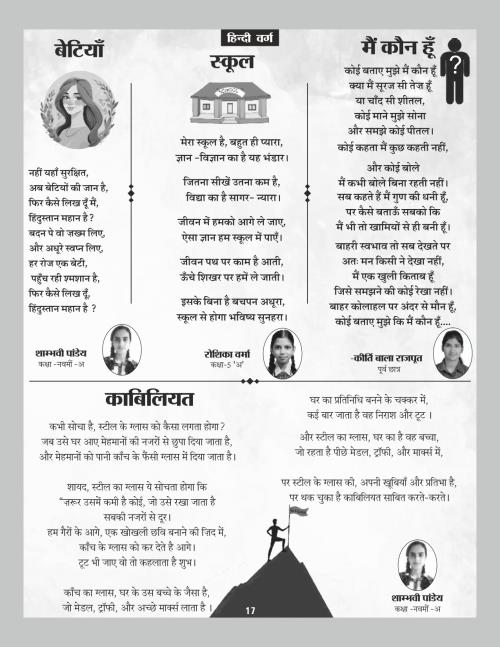 हिन्दी वर्ग
बेटियाँ
नहीं यहाँ सुरक्षित,
अब बेटियों की जान है,
फिर कैसे लिख दूँ मैं,
हिंदुस्तान महान है ?
बदन पे वो जख्म लिए,
और अधूरे स्वप्न लिए,
हर रोज एक बेटी,
पहुँच रही श्मशान है,
फिर कैसे लिख दूँ,
हिंदुस्तान महान है ?
शाम्भवी पांडेय
कक्षा -नवमीं -अ
स्कूल
SCHOOL
मेरा स्कूल है, बहुत ही प्यारा,
ज्ञान -विज्ञान का है यह भंडार।
जितना सीखें उतना कम है,
विद्या का है सागर- न्यारा।
जीवन में हमको आगे ले जाए,
ऐसा ज्ञान हम स्कूल में पाएँ।
जीवन पथ पर काम है आती,
ऊँचे शिखर पर हमें ले जाती।
इसके बिना है बचपन अधूरा,
स्कूल से होगा भविष्य सुनहरा।
रोशिका वर्मा
कक्षा-5 'अ'
मैं कौन हूँ
?
कोई बताए मुझे मैं कौन हूँ
क्या मैं सूरज सी तेज हूँ
या चाँद सी शीतल,
कोई माने मुझे सोना
और समझे कोई पीतल।
कोई कहता मैं कुछ कहती नहीं,
और कोई बोले
मैं कभी बोले बिना रहती नहीं।
सब कहते हैं मैं गुण की धनी हूँ,
पर कैसे बताऊँ सबको कि
मैं भी तो खामियों से ही बनी हूँ।
बाहरी स्वभाव तो सब देखते पर
अतः मन किसी ने देखा नहीं,
मैं एक खुली किताब हूँ
जिसे समझने की कोई रेखा नहीं।
बाहर कोलाहल पर अंदर से मौन हूँ,
कोई बताए मुझे कि मैं कौन हूँ....
-कीर्ति बाला राजपूत
पूर्व छात्र
काबिलियत
कभी सोचा है, स्टील के ग्लास को कैसा लगता होगा ?
जब उसे घर आए मेहमानों की नजरों से छुपा दिया जाता है,
और मेहमानों को पानी काँच के फैंसी ग्लास में दिया जाता है।
शायद, स्टील का ग्लास ये सोचता होगा कि
"जरूर उसमें कमी है कोई, जो उसे रखा जाता है
सबकी नजरों से दूर।
हम गैरों के आगे, एक खोखली छवि बनाने की जिद में,
काँच के ग्लास को कर देते हैं आगे।
टूट भी जाए वो तो कहलाता है शुभ।
काँच का ग्लास, घर के उस बच्चे के जैसा है,
जो मेडल, ट्रॉफी, और अच्छे मार्क्स लाता है ।
घर का प्रतिनिधि बनने के चक्कर में,
कई बार जाता है वह निराश और टूट ।
और स्टील का ग्लास, घर का है वह बच्चा,
जो रहता है पीछे मेडल, ट्रॉफी, और मार्क्स में,
पर स्टील के ग्लास की, अपनी खूबियाँ और प्रतिभा है,
पर थक चुका है काबिलियत साबित करते-करते।
शाम्भवी पांडेय
कक्षा -नवमीं -अ
17